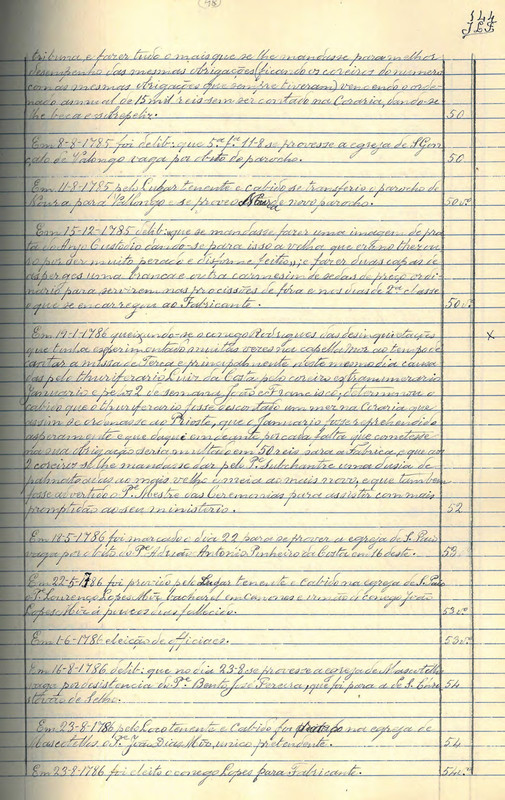 (48)
144
J L F
tribuna, e fazer tudo o mais que se lhe mandasse para melhor
desempenho das mesmas obrigações (ficando os coreiros do numero
com as mesmas obrigações que sempre tiveram) vencendo o orde-
nado annual de 15 mil reis sem ser contado na Coraria, dando-se
lhe beca e sobrepeliz. 50
Em 8-8-1785 foi delib: que 5ª fª 11-8 se provesse a egreja de S. Gon
çalo de Vallongo vaga por obito do parocho. 50
Em 11-8-1785 pelo Lugar tenente e cabido se transferio o parocho de
para Vallongo e se proveo de novo parocho. 50vº
Em 15-12-1785 delib: que se mandasse fazer uma imagem de pra
ta do Anjo Custodio dando-se para isso a velha que está no thezou
ro por ser muito pezada e disforme feitio, e fazer duas capas de
asperges uma branca e outra carmesim de sedas de preço ordi-
nario para servirem nas procissões de fora e nos dias de 2ª classe
e que se encarregou ao Fabricante. 50vº
Em 19-1-1786 queixando-se o conego Rodrigues das desinquietações x
que tinha esperimentado muitas vezes na capella mór ao tempo de
cantar a missa de Terça e principalmente neste mesmo dia causa
das pelo thuriferario Luiz da Costa pelo coreiro extranumerario
Januario e pelos 2 de semana João e Francisco; determinou o
cabido que o thuriferario fosse descontado um mez na Coraria que
assim se ordenasse ao Prioste, que o Januario fosse reprehendido
asperamente e que daqui em deante por cada falta que comettesse
na sua obrigação seria multado em 50 reis para a Fabrica, e que aos
2 coreiros se lhe mandasse dar pelo Pe. Subchantre uma duzia de
palmatoadas ao mais velho e meia ao mais novo, e que tambem
fosse advertido o Pe. Mestre das Ceremonias para assistir com mais
promptidão ao seu ministerio. 52
Em 18-5-1786 foi marcado o dia 22 para se prover a egreja de S. Paio
vaga por obito do Pe. Adrião Antonio Pinheiro da Costa em 16 deste. 53
Em 22-5-1786 foi provido pelo Lugar tenente e Cabido na egreja de S. Paio
o Pe. Lourenço Lopes Miz bacharel em Canones e irmão do conego João
Lopes Miz á poucos dias fallecido. 53vº
Em 1-6-1786 eleição de officiaes. 53vº
Em 16-8-1786 delib: que no dia 23-8 se provesse a egreja de Mascotellos
vaga por desistencia do Pe. Bento José Pereira, que foi para a de S. Chris
tovão de Selho. 54
Em 23-8-1786 pelo Locotenente e Cabido foi na egreja de
Mascotellos o Pe. João Dias Miz, unico pretendente. 54
Em 23-8-1786 foi eleito o conego Lopes para Fabricante. 54vº